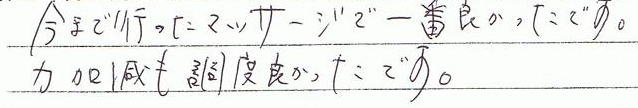 今まで行ったマッサージで一番良かったです。
力加減も調度良かったです。